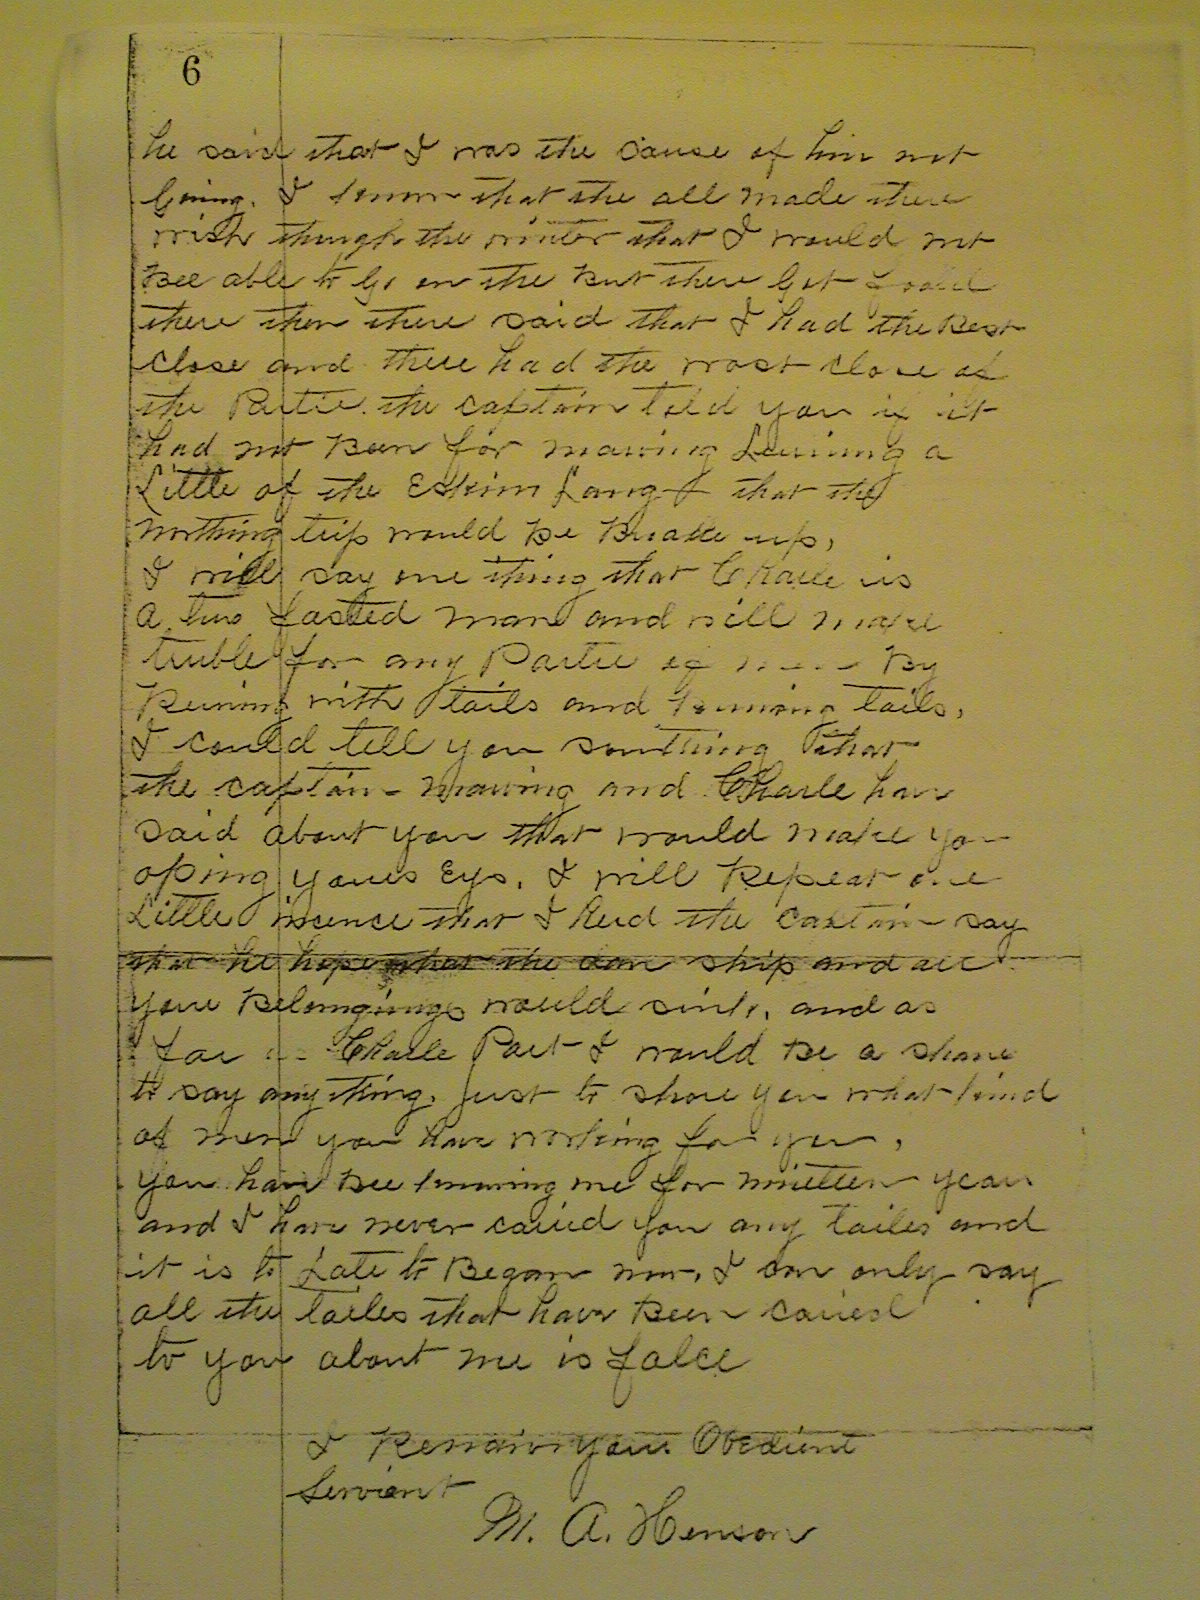 6
he said that I was the cause of him not
Going. I know that the all made there
wish though the winter that I would not
Bee able to Go on the But there Got foold
there then there said that I had the Best
Close and there had the wost close of
the Partie. the captain told you if it
had not Been for mawing Lairning a
Little of the Eskimo Lang that the
northing trip would Be Brake up,
I will say one thing that Charle is
a two fasted man and will make
truble for any Partie of men By
Runing with tails and Bringing tails,
I could tell you somthing that
the captain mawing and Charle have
said about you that would make you
oping yours Eys. I will Repeat one
Little incence that I Herd the Captain say
that he hope that the dam ship and all
your Belongings would sink, and as
far as Charle Part I would be a shame
to say anything. Just to show you what kind
of men you have working for you,
you have Bee knowing me for ninetten years
and I have never caried you any tailes and
it is to Late to Began now, I can only say
all the tailes that have Been caried
to you about me is falce
I Remain your Obedient
Serviant
M. A. Henson